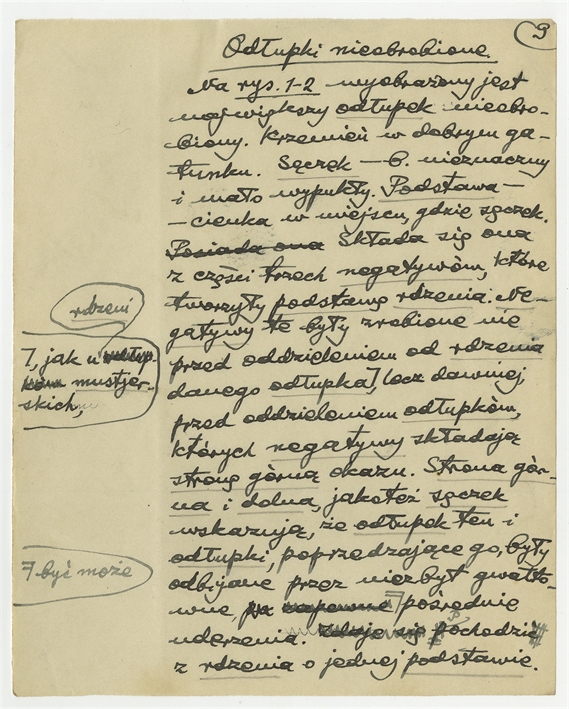 9
Odłupki nieobrobione.
Na rys. 1-2 wyobrażony jest
największy odłupek nieobro-
biony. Krzemień w dobrym ga-
tunku. Sęczek – b. nieznaczny
i mało wypukły. Podstawa –
– cienka w miejscu, gdzie sęczek.
Posiada ona Składa się ona
z części trzech negatywów, które
tworzyły podstawę rdzenia. Ne-
gatywy te były zrobione nie
przed oddzieleniem od rdzenia
danego odłupka ], lecz dawniej,
przed oddzieleniem odłupków,
których negatywy składają
stronę górną okazu. Strona gór-
na i dolna, jakoteż sęczek
wskazują, że odłupek ten i
odłupki, poprzedzające go, były
odbijane przez niezbyt gwałto-
wne, zapewne 7 pośrednie
uderzenia. Zdaje się pochodzi
z rdzenia o jednej podstawie.
rdzeni
], jak u
mustjer-
skich,
7 być może